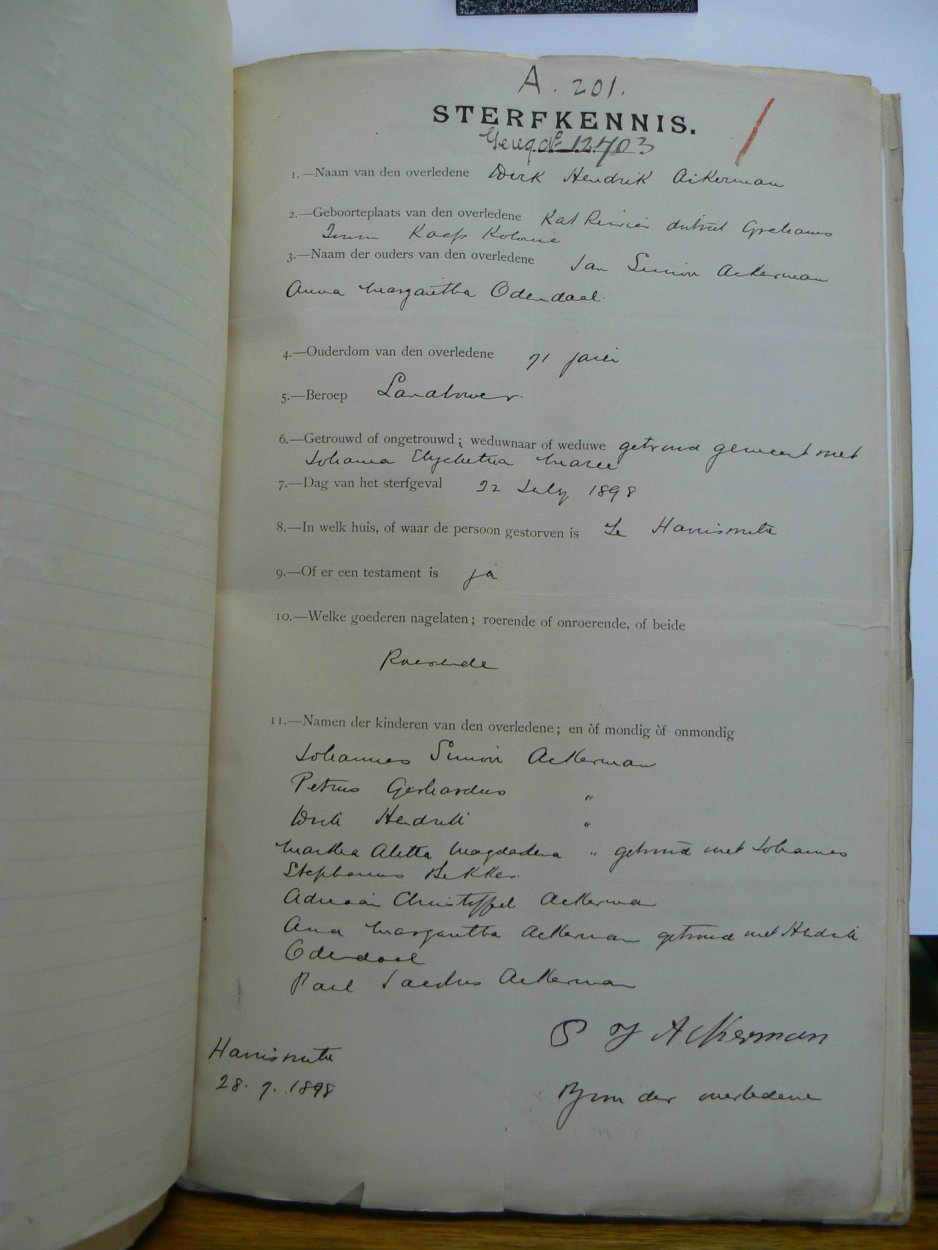 A. 201.
STERFKENNIS.
Gereg. No 12703
1.—Naam van den overledene Dirk Hendrik Ackerman
2.—Geboorteplaats van den overledene Kat Rivier district Grahams
Town Kaap Kolonie
3.—Naam der ouders van den overledene Jan Simon Ackerman
Anna Margaretha Odendaal
4.—Ouderdom van den overledene 71 jaren
5.—Beroep Landbouwer
6.—Getrouwd of ongetrouwd; weduwnaar of weduwe getrouwd geweest met
Johanna Maree
7.—Dag van het sterfgeval 22 July 1898
8.—In welk huis, of waar de persoon gestorven is Te Harrismith
9.—Of er een testament is ja
10.—Welke goederen nagelaten; roerende of onroerende, of beide
Roerende
11.—Namen der kinderen van den overledene; en òf mondig òf onmondig
Johannes Simon Ackerman
Petrus Gerhardus "
Dirk Hendrik "
Martha Aletta Magdalena " getrouwd met Johannes
Stephanus Bekker
Adriaan Christoffel Ackerman
Anna Margaretha Ackerman getrouwd met Hendrik
Odendaal
Paul Jacobus Ackerman
P J Ackerman
Harrismith
28. 7. 1898
Zoon der overledene